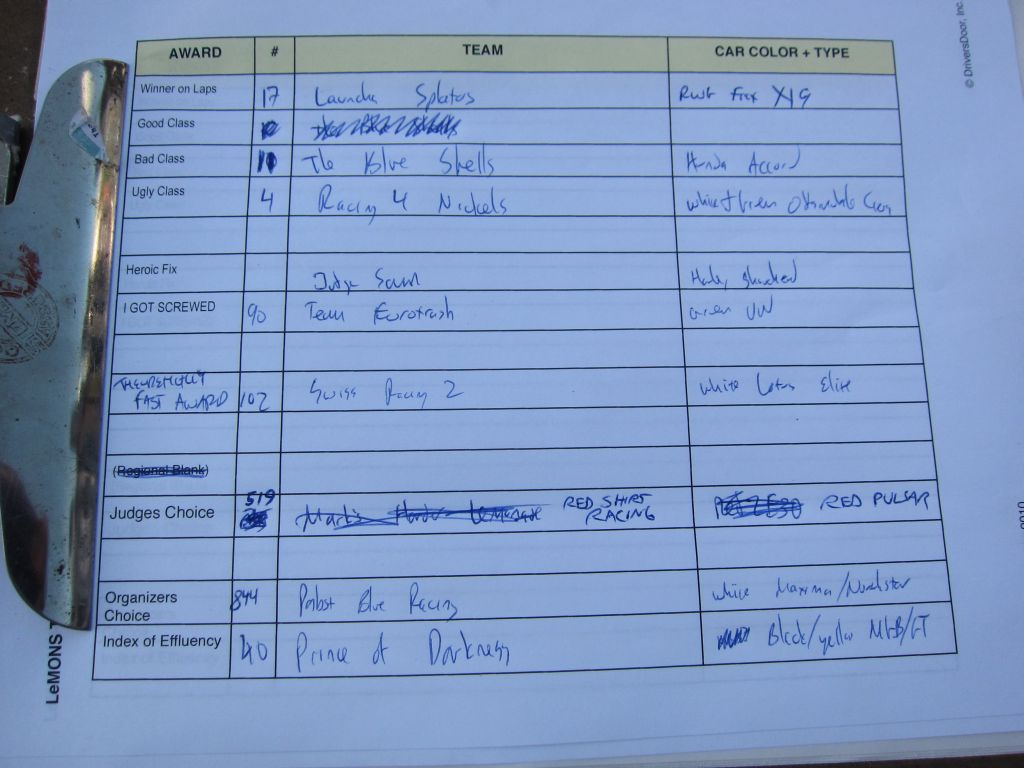 © DriversDoor, Inc.
AWARD # TEAM CAR COLOR + TYPE
Winner on Laps 17 Launcha Splators RWG Fiat X19
Good Class
Bad Class The Blue Shells Honda Accord
Ugly Class 4 Racing 4 Nickels White + Green Oldsmobile
Heroic Fix Judge Sam
I GOT SCREWED 90 Team Eurotrash Green VW
THEORETICALLY FAST AWARD 102 Swiss Racing 2 White Lotus Elite
(Regional Blank)
Judges Choice 519 Mark's Harder LeMesque RED SHIRT RACING RED PULSAR
Organizers Choice 844 Pabst Blue Racing White Maxima/Northstar
Index of Effluency 40 Prince of Darkness Black/yellow MGB/GT
LeMONS
2010